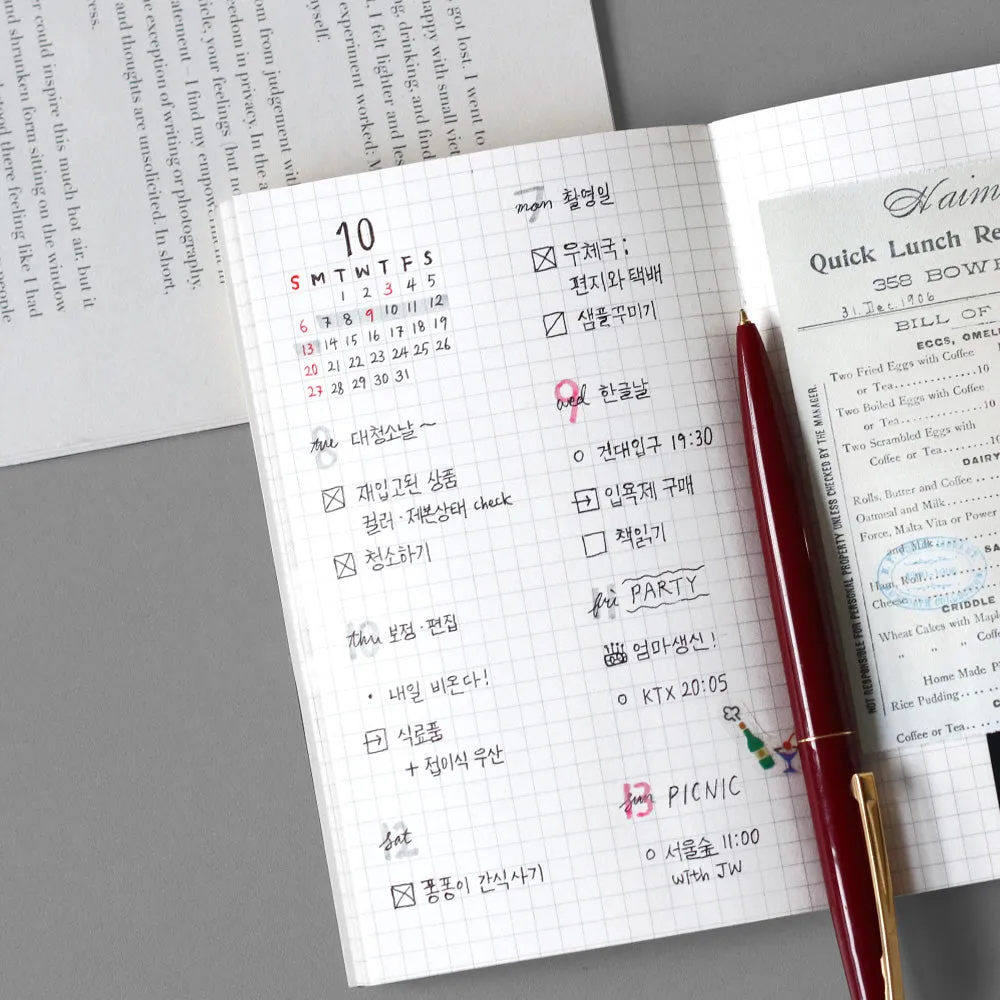 got lost. I went to
happy with small vict
ng, drinking, and find
I felt lighter and les
experiment worked: M
myself.
om from judgement wi
eedom in privacy. In the a
icle, your feelings (but no
atement – I find my empower
he exception of writing or photography.
and thoughts are unsolicited. In short,
ress.
er could inspire this much hot air, but it
and shrunken form sitting on the window
stood there feeling like I had
people
10
S M T W T F S
1 2 3 4 5
6 7 8 9 10 11 12
13 14 15 16 17 18 19
20 21 22 23 24 25 26
27 28 29 30 31
7
mon 촬영일
우체국:
편지와 택배
샘플꾸미기
8
tue 대청소날~
재입고된 상품
컬러·제본상태 check
청소하기
9
wed 한글날
건대입구 19:30
입욕제 구매
책읽기
10
thu 보정·편집
· 내일 비온다!
식료품
+ 접이식 우산
11
fri PARTY
엄마생신!
KTX 20:05
12
sat
퐁퐁이 간식사기
13
sun PICNIC
서울숲 11:00
with JW
Haim
Quick Lunch Re
358 BOWE
31. Dec. 1906
BILL OF
EGGS, OMEL
Two Fried Eggs with Coffee
or Tea..............10
Two Boiled Eggs with Coffee
or Tea..............10
Two Scrambled Eggs with
Coffee or Tea...........10
DAIRY
Rolls, Butter and Coffee
Oatmeal and Milk
Force, Malta Vita or Power
and Milk
SA
Ham, Roll
Cheese
GRIDDLE
Wheat Cakes with Maple
" " Coffee
Home Made P
Rice Pudding....
Coffee or Tea...
NOT RESPONSIBLE FOR PERSONAL PROPERTY UNLESS CHECKED BY THE MANAGER.